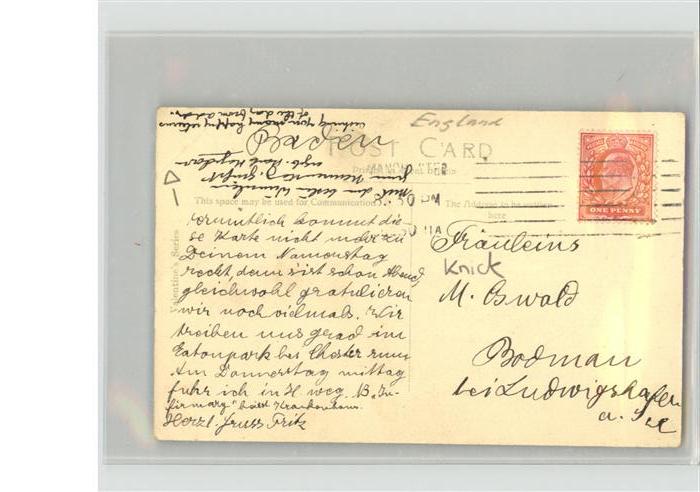 England
POST CARD
MANCHESTER
This space may be used for Communication
The Address to be written
here
ONE PENNY
Valentine's Series
vermutlich kommt die
se Karte nicht mehr zu
Deinem Namenstag
recht, denn s'ist schon Abend,
gleichwohl gratulieren
wir noch vielmals. Wir
treiben uns grad im
Eatonpark bei Chester rum
Am Donnerstag mittag
fuhr ich in H. weg.
Herzl. Gruss Fritz
Fräuleins
Knick
M. Oswald
Bodman
bei Ludwigshafen
a. See
Baden
wishing you many happy returns
of the day from